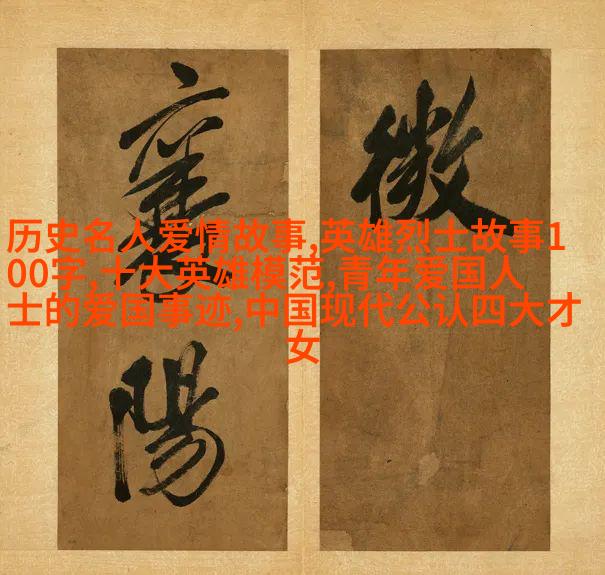 微
襄陽
历史名人爱情故事,英雄烈士故事1
00字,十大英雄模范,青年爱国人
士的爱国事迹,中国现代公认四大才
女